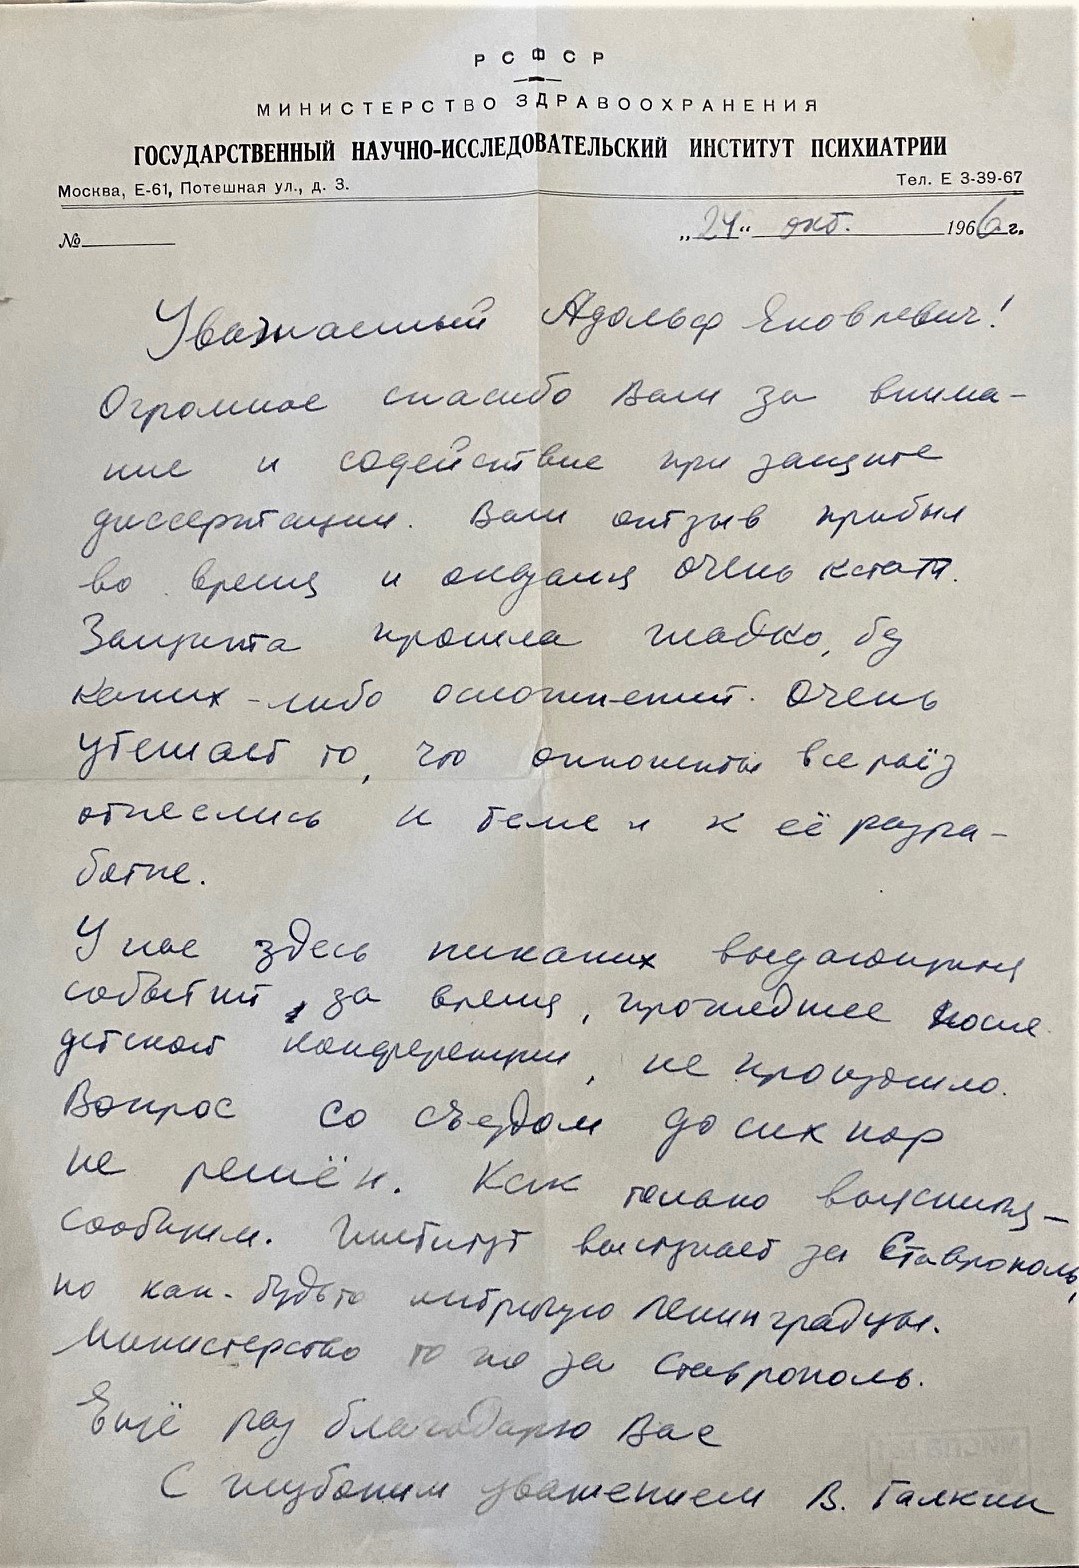 РСФСР
МИНИСТЕРСТВО ЗДРАВООХРАНЕНИЯ
ГОСУДАРСТВЕННЫЙ НАУЧНО-ИССЛЕДОВАТЕЛЬСКИЙ ИНСТИТУТ ПСИХИАТРИИ
Москва, Е-61, Потешная ул., д. 3.
Тел. Е 3-39-67
№
„24“ окт. 1966 г.
Уважаемый Адольф Яковлевич!
Огромное спасибо Вам за внима-
ние и содействие при защите
диссертации. Ваш отзыв прибыл
во время и оказался очень кстати.
Защита прошла гладко, без
каких-либо осложнений. Очень
утешает то, что оппоненты всерьёз
отнеслись и к теме и к её разра-
ботке.
У нас здесь никаких выдающихся
событий, за время, прошедшее после
детской конференции, не произошло.
Вопрос со съездом до сих пор
не решён. Как только выяснится –
сообщим. Институт выступает за Ставрополь,
но как-будьто интригуют Ленинградцы.
Министерство то же за Ставрополь.
Ещё раз благодарю Вас
С глубоким уважением В. Галкин